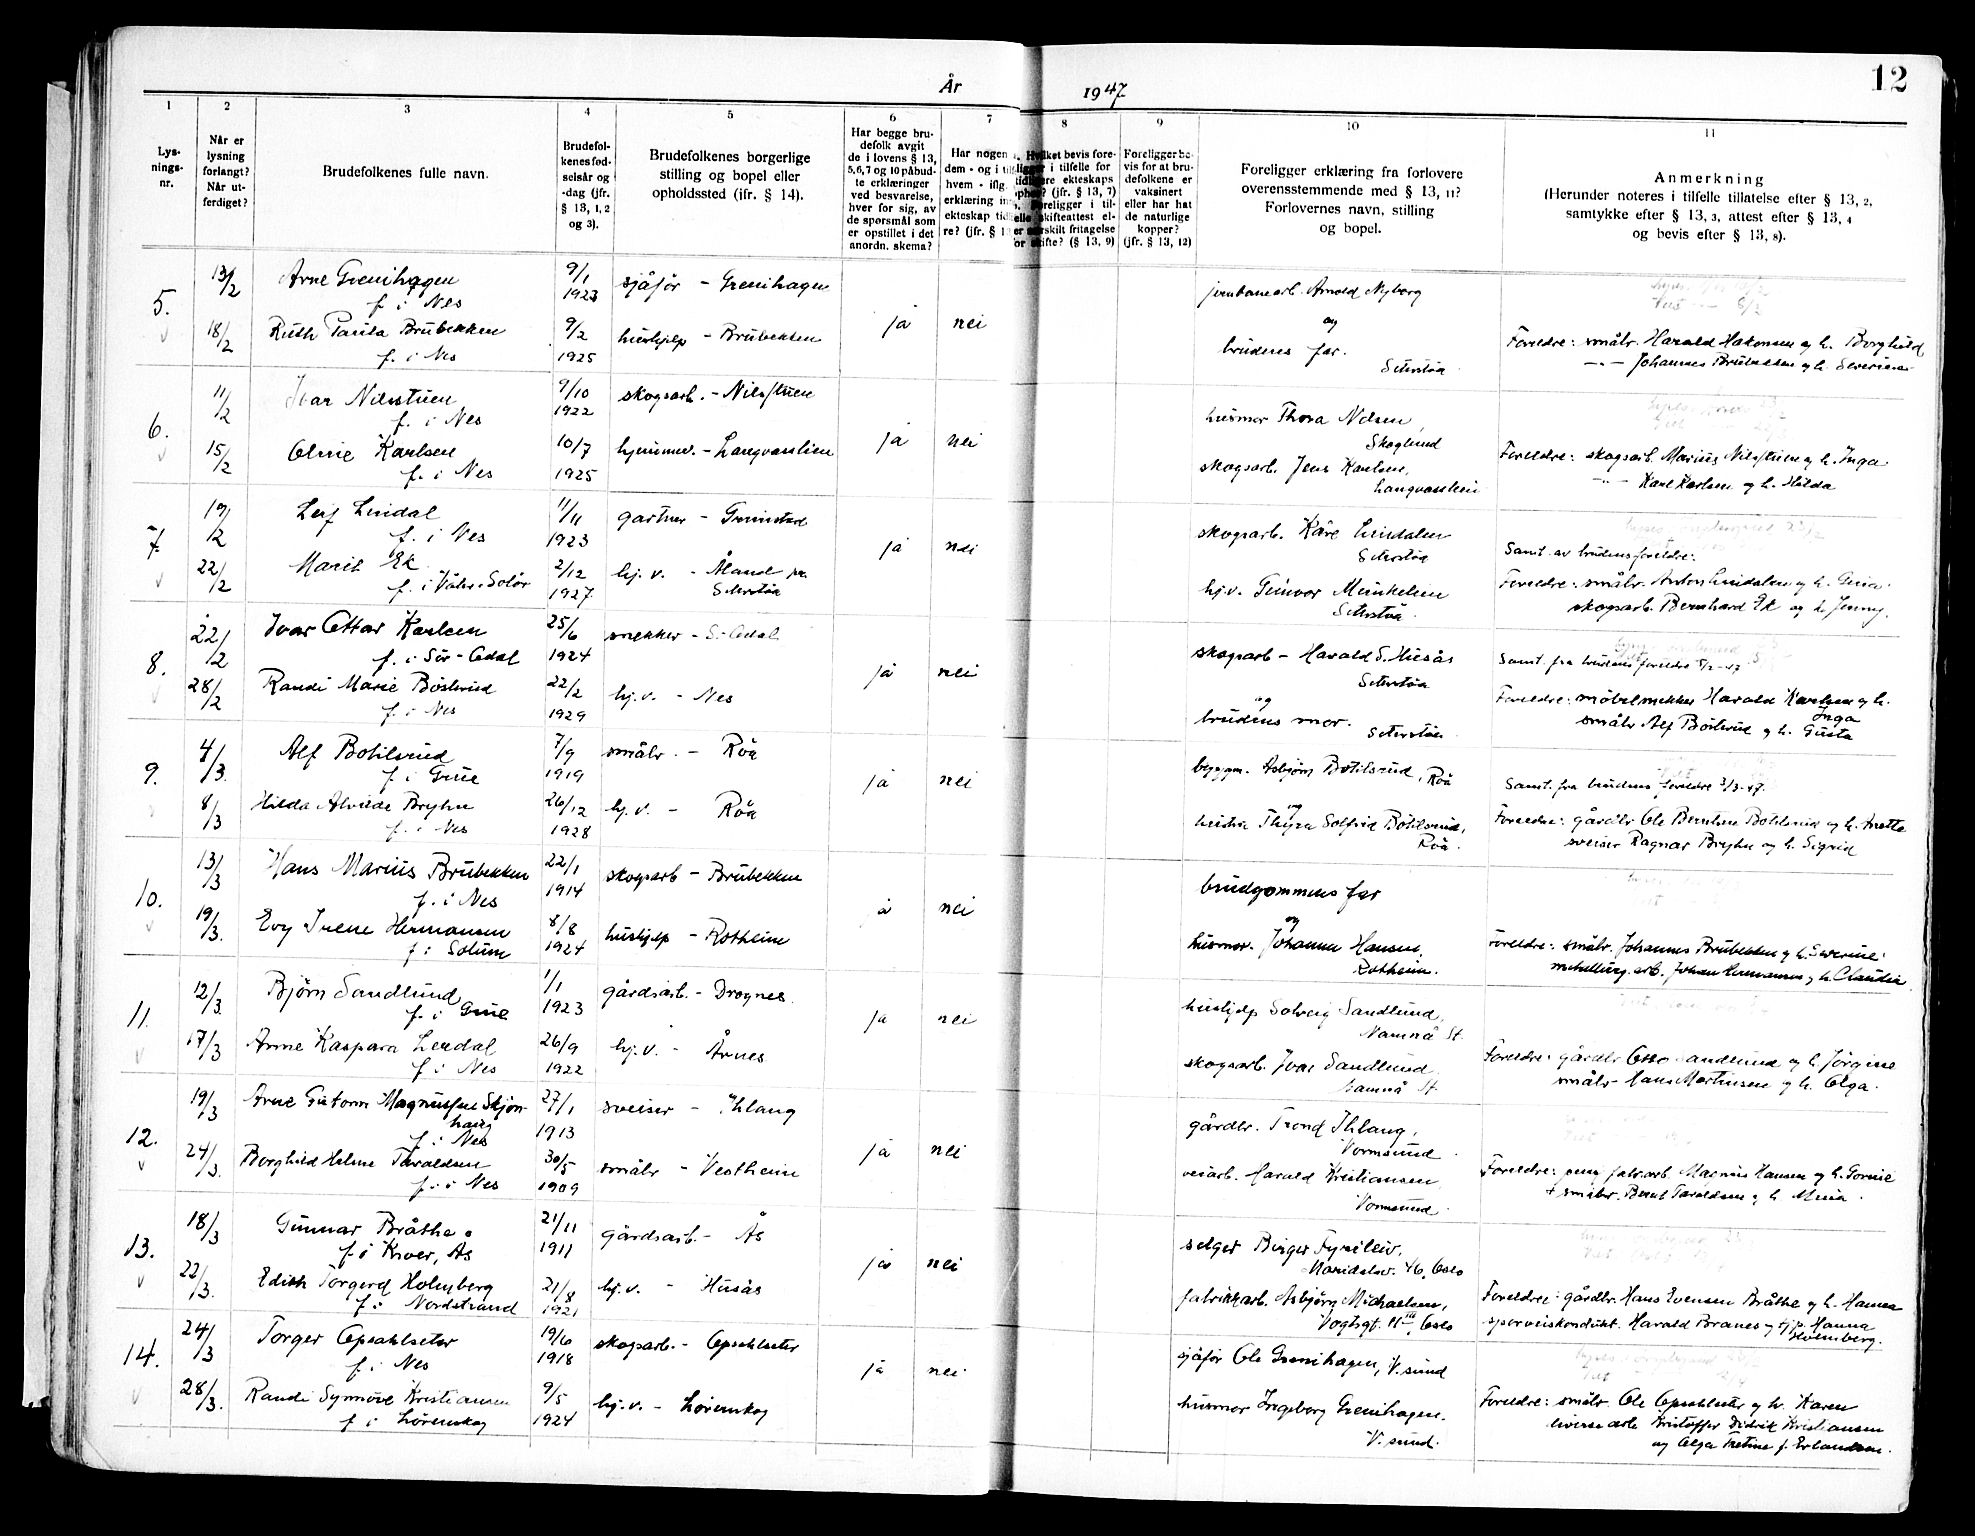 12
År 1947
1 2 3 4 5 6 7 8 9 10 11
Lys-
nings-
nr.
Når er
lysning
forlangt?
Når ut-
ferdiget?
Brudefolkenes fulle navn.
Brudefol-
kenes fød-
selsår og
-dag (jfr.
§ 13, 1, 2
og 3).
Brudefolkenes borgerlige
stilling og bopel eller
opholdssted (jfr. § 14).
Har begge bru-
defolk avgit
de i lovens § 13,
5, 6, 7 og 10 påbud-
te erklæringer
ved besvarelse,
hver for sig, av
de spørsmål som
er opstillet i det
anordn. skema?
Har nogen
dem - og i
hvem - iflg.
erklæring
ekteskap
re? (jfr. §
Hvilket bevis fore-
ligger i tilfelle for
ekteskaps
(jfr. § 13, 7)
Foreligger i til-
skifteattest el-
særskilt fritagelse
for skifte? (§ 13, 9)
Foreligger be-
vis for at bru-
defolkene er
vaksinert
eller har hat
de naturlige
kopper?
(jfr. § 13, 12)
Foreligger erklæring fra forlovere
overensstemmende med § 13, 11?
Forlovernes navn, stilling
og bopel.
Anmerkning
(Herunder noteres i tilfelle tillatelse efter § 13, 2,
samtykke efter § 13, 3, attest efter § 13, 4
og bevis efter § 13, 8).
5. 13/2 Arne Grenihagen 9/1 1923 sjåfør - Grenihagen
f. i Nes
18/2 Ruth Paula Brubekken 9/2 1925 hushjelp - Brubekken ja nei
f. i Nes
jernbanearb. Arnold Nyborg
og
brudens far.
Seterstøa
Foreldre: småbr. Harald Hakonsen og h. Borghild
-"- Johannes Brubekken og h. Severine
6. 11/2 Ivar Nilsstuen 9/10 1922 skogsarb. - Nilsstuen
f. i Nes
15/2 Oline Karlsen 10/7 1925 hjemmev. - Langvasslien ja nei
f. i Nes
husmor Thora Nilsen,
Skoglund
skogsarb. Jens Karlsen,
Langvasslien
Foreldre: skogsarb. Marius Nilsstuen og h. Inga
-"- Karl Karlsen og h. Hilda
7. 19/2 Leif Lindal 11/11 1923 gartner - Grimstad
f. i Nes
22/2 Marit Ek 2/12 1927 hj. v. - Åland pr. ja nei
f. i Våler i Solør Seterstøa
skogsarb. Kåre Lindalen
Seterstøa
hj.v. Gunvor Munkelien
Seterstøa
Samt. av brudens foreldre.
Foreldre: småbr. Anton Lindalen og h.
skogsarb. Bernhard Ek og h. Jenny.
8. 22/2 Ivar Ottar Karlsen 25/6 1924 snekker - S. Odal
f. i Sør-Odal
28/2 Randi Marie Bøslerud 22/2 1929 hj.v. - Nes ja nei
f. i Nes
skogsarb - Harald S. Husås
Seterstøa
og
brudens mor.
Seterstøa
Samt. fra brudens foreldre
Foreldre: møbelsnekker Harald Karlsen og h.
Inga
småbr Alf Bøslerud og h. Gusta
9. 4/3 Alf Bohlsrud 7/9 1919 småbr. - Röa
f. i Grue
8/3 Hilda Alvilde Bryhn 26/12 1928 hj. v. - Röa ja nei
f. i Nes
byggm. Asbjørn Bohilsrud, Röa
og
hustru Thyra Solfrid Bohilsrud,
Röa.
Samt. fra brudens foreldre 3/3-47.
Foreldre: gårdbr Ole Bernhar Bohlsrud og h. Anette
sveiser Ragnar Bryhn og h. Sigrid
10. 13/3 Hans Marius Brubekken 22/1 1914 skogsarb - Brubekken
f. i Nes
19/3. Evy Irene Hermansen 8/8 1924 hushjelp - Rotheim ja nei
f. i Solum
brudgommens far
og
husmor. Johanna Hansen,
Rotheim.
Foreldre: småbr. Johannes Brubekken og h. Severine.
metallurg. arb. Johan Hermansen og h. Claudia
11. 12/3. Bjørn Sandlund 1/1 1923 gårdsarb. - Drognes
f. i Grue
17/3 Anne Kaspara Lerdal 26/9 1922 hj. v. - Årnes ja nei
f. i Nes
hushjelp Solveig Sandlund,
Namnå St.
skogsarb. Ivar Sandlund
Namnå St
Foreldre: gårdbr Otto Sandlund og h. Jørgine
småbr - Hans Martinsen og h. Olga.
12. 19/3 Arne Gutorm Magnussen Skjøn- 27/1 1913 sveiser - Ihlang
haug
f. i Nes
24/3. Borghild Helene Taraldsen 30/5 1909 småbr - Vestheim ja nei
f. i Nes
gårdbr. Trond Ihlang,
Vormsund
veiarb. Harald Kristiansen,
Vormsund
Foreldre: pens. fabr.arb. Magnus Hansen og h.
+ småbr. Bernt Taraldsen og h.
13. 18/3 Gunnar Bråthe 21/11 1911 gårdsarb. - Ås
f. i Kroer, Ås
22/3. Edith Torgerd Holmberg 21/8 1921 hj. v. - Husås ja nei
f. i Nordstrand
selger Birger Fyrileiv,
Maridalsv. 46, Oslo
fabrikkarb. Asbjørg Michaelsen,
Vogtsgt. 11 III, Oslo
Foreldre: gårdbr. Hans Evensen Bråthe og h. Hanna
sporveiskondukt. Harald Branes og Hanna
Holmberg.
14. 24/3 Torger Opsahlseter 19/6 1918 skogsarb. - Opsahlseter
f. i Nes
28/3. Randi Synnøve Kristiansen 9/5 1924 hj.v. - Lørenskog ja nei
f. i Lørenskog
sjåfør Ole Grenihagen, V.sund
husmor Ingeborg Grenihagen.
V. sund.
Foreldre: småbr. Ole Opsahlseter og h. Karen
arb Kristoffer Didrik Kristiansen
og Olga f. Erlandsen.